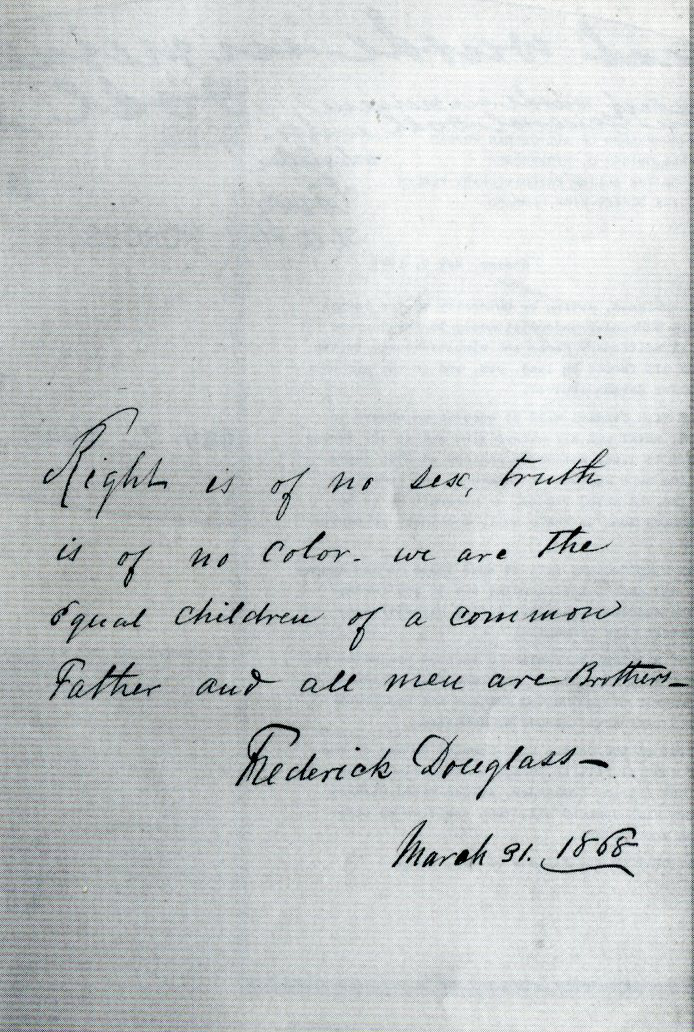 Right is of no sex, truth
is of no color - we are the
equal children of a common
Father and all men are Brothers -
Frederick Douglass -
March 31. 1868